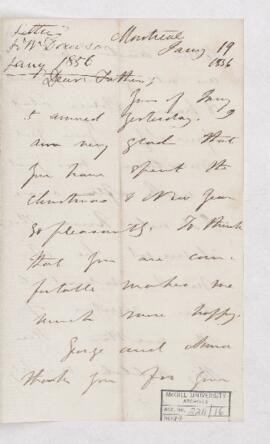 Letter
Sr Wm Dawson
Jany 1856
Montreal
Jany 19
1856
Dear Father,
Yours of Jany
arrived yesterday. I
am very glad that
you have spent the
Christmas & New Year
so pleasantly. To think
that you are com-
fortable makes me
much more happy.
George and Anna
thank you for your
McGILL UNIVERSITY
ARCHIVES
ACC. NO. 2211/16
REF.